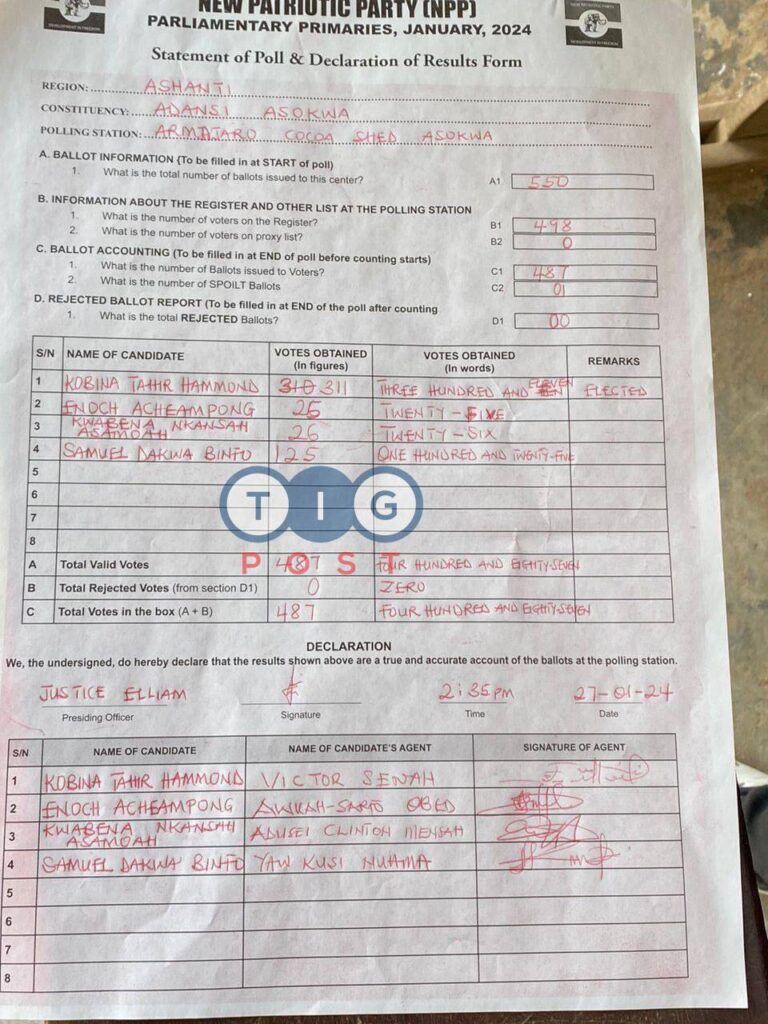 NEW PATRIOTIC PARTY (NPP)
PARLIAMENTARY PRIMARIES, JANUARY, 2024
Statement of Poll & Declaration of Results Form
REGION: ASHANTI
CONSTITUENCY: ADANSI ASOKWA
POLLING STATION: COCOA SHED ASOKWA
A. BALLOT INFORMATION (To be filled in at START of poll)
1. What is the total number of ballots issued to this center? A1 550
B. INFORMATION ABOUT THE REGISTER AND OTHER LIST AT THE POLLING STATION
1. What is the number of voters on the Register? B1 498
2. What is the number of voters on proxy list? B2 0
C. BALLOT ACCOUNTING (To be filled in at END of poll before counting starts)
1. What is the number of Ballots issued to Voters? C1 487
2. What is the number of SPOILT Ballots C2 01
D. REJECTED BALLOT REPORT (To be filled in at END of the poll after counting
1. What is the total REJECTED Ballots? D1 00
S/N NAME OF CANDIDATE VOTES OBTAINED (In figures) VOTES OBTAINED (In words) REMARKS
1 KOBINA TAHIR HAMMOND 310 311 THREE HUNDRED AND ELEVEN ELECTED
2 ENOCH ACHEAMPONG 25 TWENTY-FIVE
3 KWABENA NKANSAH ASAMOAH 26 TWENTY-SIX
4 SAMUEL DAKWA BINFO 125 ONE HUNDRED AND TWENTY-FIVE
5
6
7
8
TIG
POST
A Total Valid Votes 487 FOUR HUNDRED AND EIGHTY-SEVEN
B Total Rejected Votes (from section D1) 0 ZERO
C Total Votes in the box (A + B) 487 FOUR HUNDRED AND EIGHTY-SEVEN
DECLARATION
We, the undersigned, do hereby declare that the results shown above are a true and accurate account of the ballots at the polling station.
JUSTICE ELLIAM 2:35PM 27-01-24
Presiding Officer Signature Time Date
S/N NAME OF CANDIDATE NAME OF CANDIDATE'S AGENT SIGNATURE OF AGENT
1 KOBINA TAHIR HAMMOND VICTOR SENAH
2 ENOCH ACHEAMPONG OBED
3 KWABENA NKANSAH ASAMOAH ADUSEI CLINTON MENSAH
4 SAMUEL DAKWA BINFO YAW KUSI NUAMA
5
6
7
8